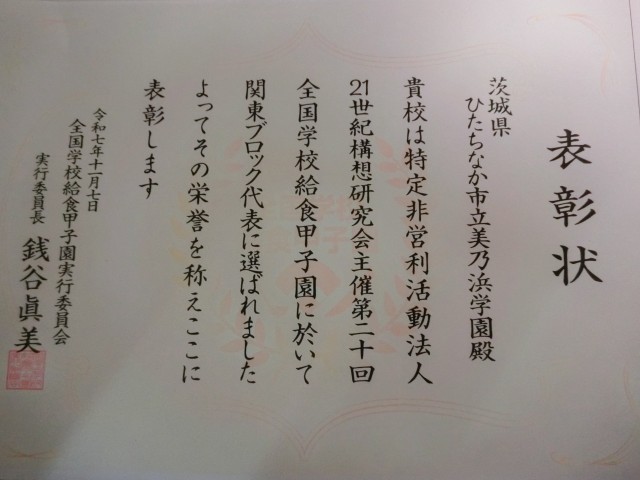 表彰状
茨城県
ひたちなか市立美乃浜学園殿
貴校は特定非営利活動法人
21世紀構想研究会主催第二十回
全国学校給食甲子園に於いて
関東ブロック代表に選ばれました
よってその栄誉を称えここに
表彰します
令和七年十一月七日
全国学校給食甲子園実行委員会
実行委員長 銭谷眞美